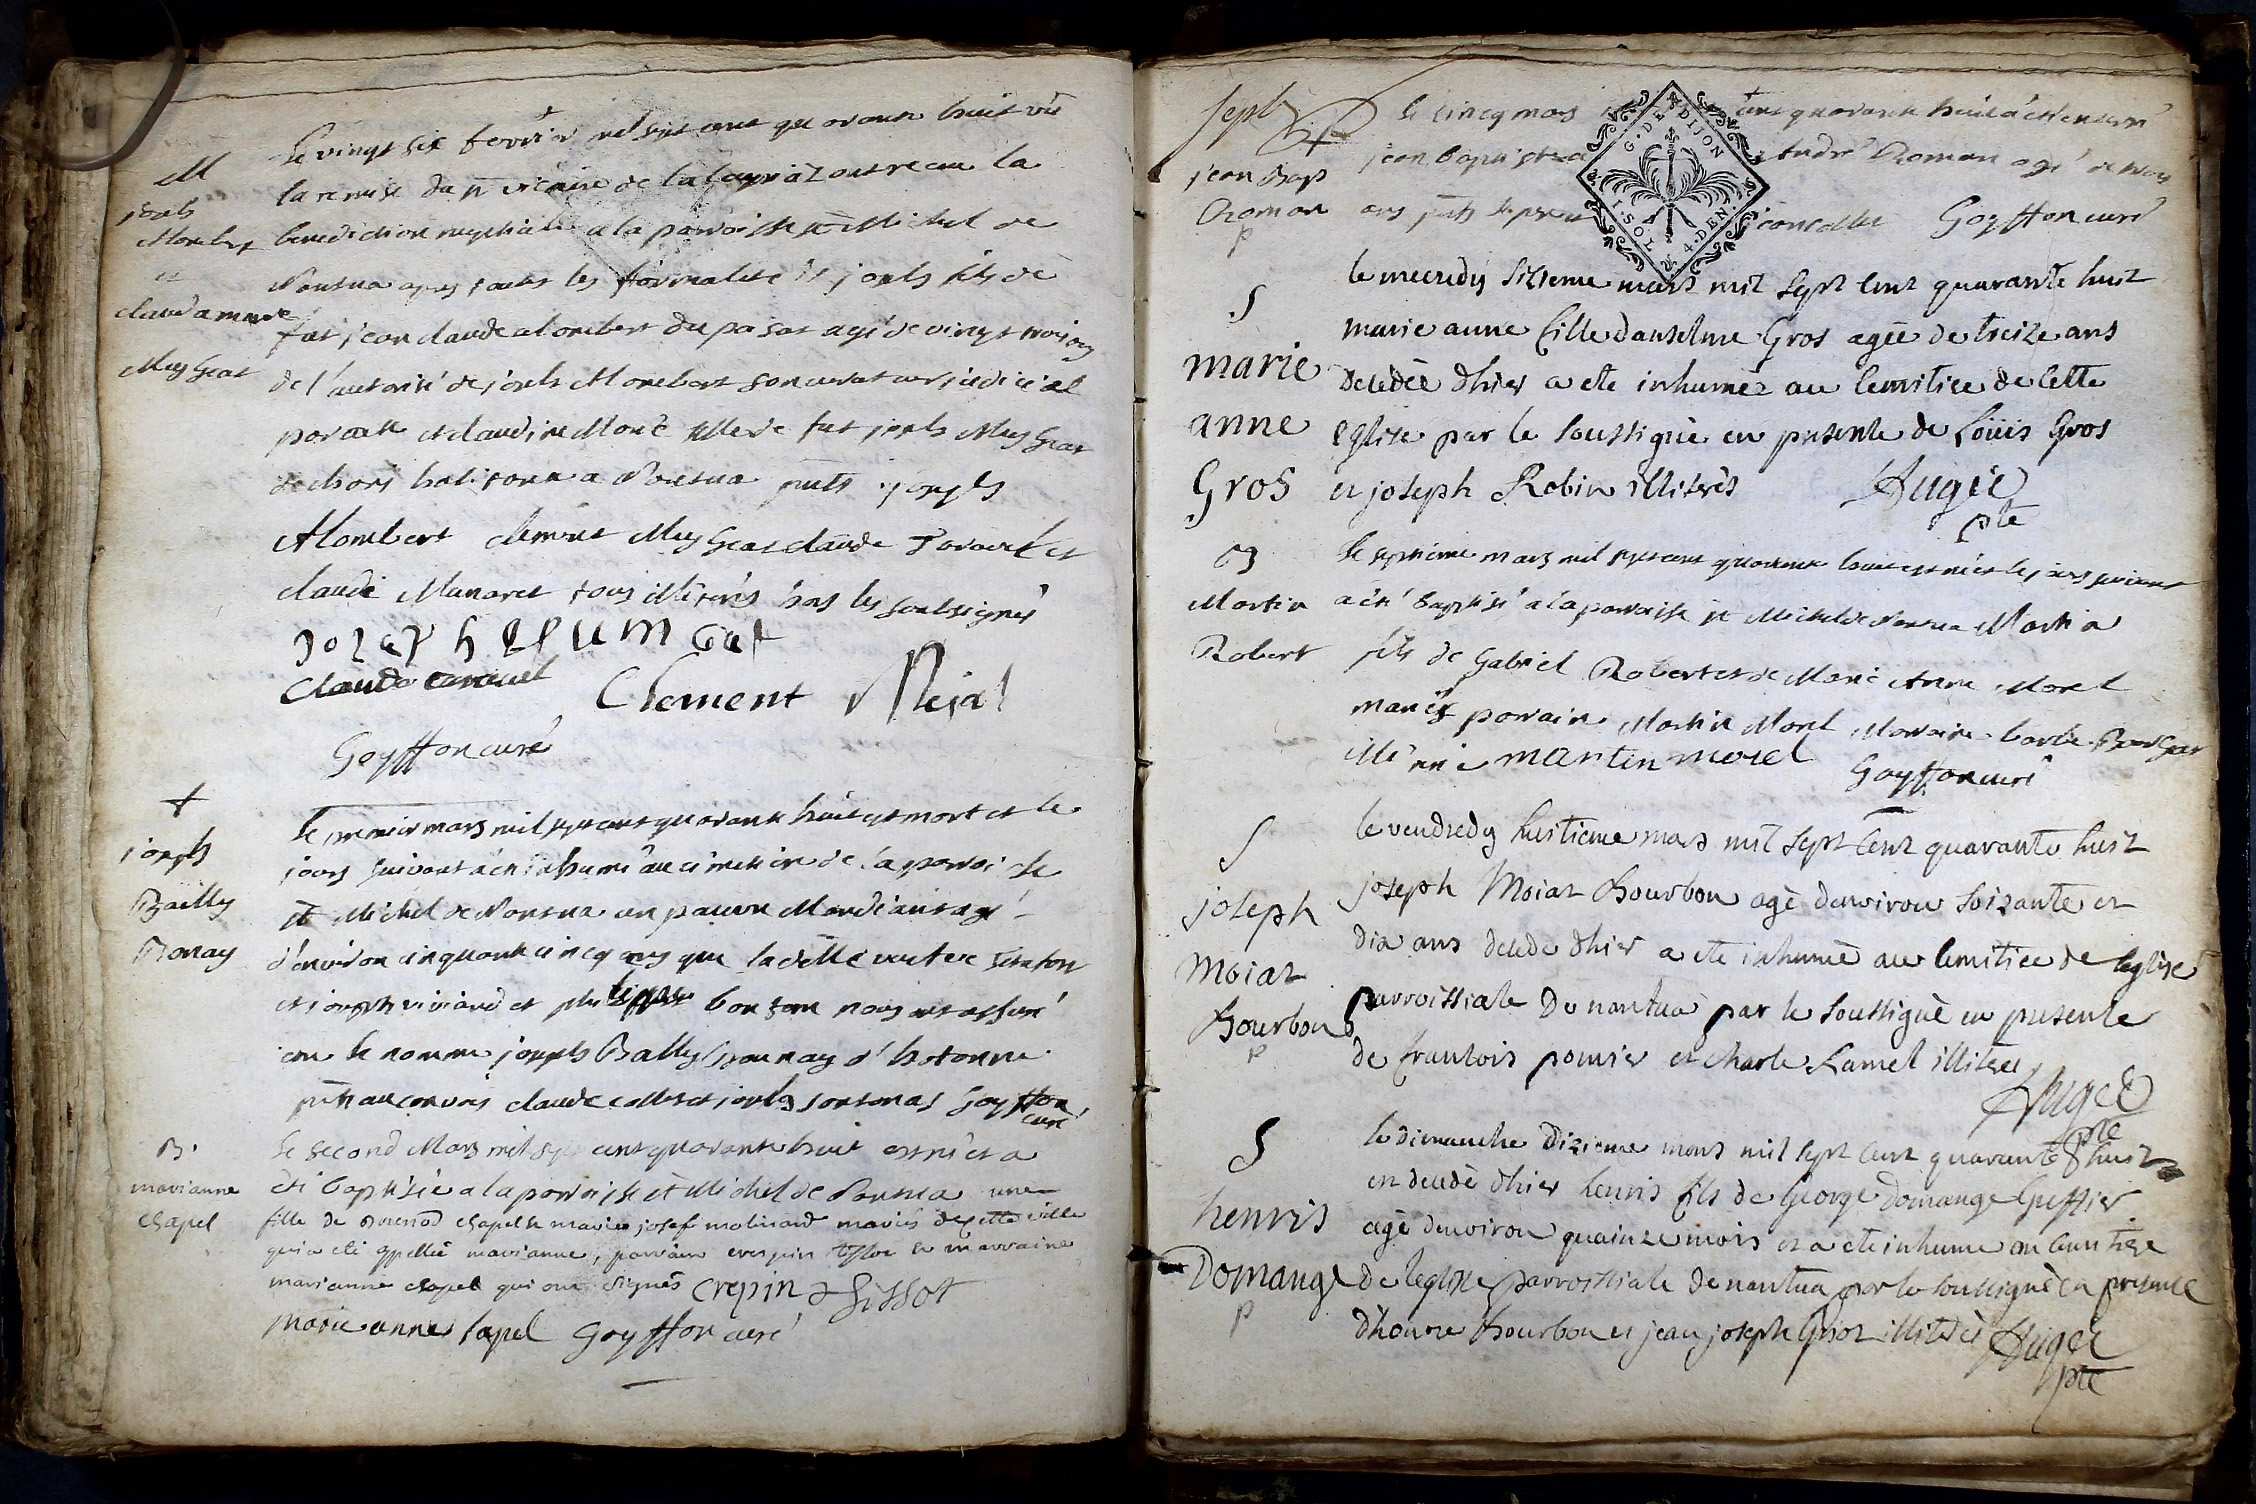 M
joseph
Alombert
et
claudamarie
Meygeat
Le vingt six fevrier mil sept cent quarante huit vû
la remise du sr vicaire de la ont recu la
benediction nuptiale a la paroisse st Michel de
Nantua apres toutes les formalités joseph fils de
fut jean claude alombert du agé de vingt trois ans
de l'autorité de joseph Alombert son curateur judiciel
par ait et claudine Marie fille de fut joseph Meygeat
habitants a Nantua pnts joseph
Alombert clement Meygeat claude Taravel et
claude Munaret tous illiterés hors les soubsignés
claude taravel
Clement Mejat
Goyffon curé
+
joseph
Bailly
Ronay
le premier mars mil sept cent quarante huit est mort et le
jours suivant a eté inhumé au cimetiere de la paroisse
st Michel de Nantua un pauvre Mandiant agé
d'environ cinquante cincq ans que la delle
et joseph viviand et bon nous ont assuré
le nommé joseph Bally d'hotonne
pnts au convois claude collet et joseph sonthonas Goyffon
curé
B.
marianne
chapel
le second Mars mil sept cent quarante huit est née et a
été baptisée a la paroisse st Michel de Nantua une
fille de chapel et marie josef molinard mariés de cette ville
qui a eté appellée marianne, parrain crespin tissot et marraine
marianne chapel qui ont signés crepin tissot
marie anne sapel Goyffon curé
sept
+
jean bap
Roman
p
le cincq mars cent quarante huit a eté enterré
jean baptiste André Roman agé de trois
ans pnts collet Goyffon curé
S
marie
anne
Gros
le mecredy sizieme mars mil sept cent quarante huit
marie anne fille danselme Gros agée de treize ans
decedèe d'hier a ete inhumèe au cemitiee de cette
eglise par le soussignè en presente de Loüis Gros
et joseph Robin illiterès Augèe
pte
B
Martin
Robert
le septieme mars mil sept cent quarante huit est né et le jours suivant
a eté baptisé a la paroisse st Michel de Nantua Martin
fils de Gabriel Robert et de Marie Anne Morel
mariés parrain Martin Morel Marraine barbe
illiterée martin morel Goyffon curé
S
joseph
Moiat
Bourbon
p
le vendredy huitieme mars mil sept cent quarante huit
joseph Moiat Bourbon agè denviron soizante et
dix ans decede d'hier a ete inhumè au cemitiee de leglise
parroissiale De nantua par le soussignè en presente
de francois pomier et charle Lamel illiteré
Augeè
pte
S
henris
Domange
p
le dimanche dizieme mars mil sept cent quarante huit
est decedè d'hier henris fils de George Domange
agè denviron quainze mois et a ete inhume au cemitiere
de leglise parroissiale de nantua par le soussignè en presente
d'honore Bourbon et jean joseph illiterès Augèe
pte
G. DE DIJON
1. SOL 4. DEN.